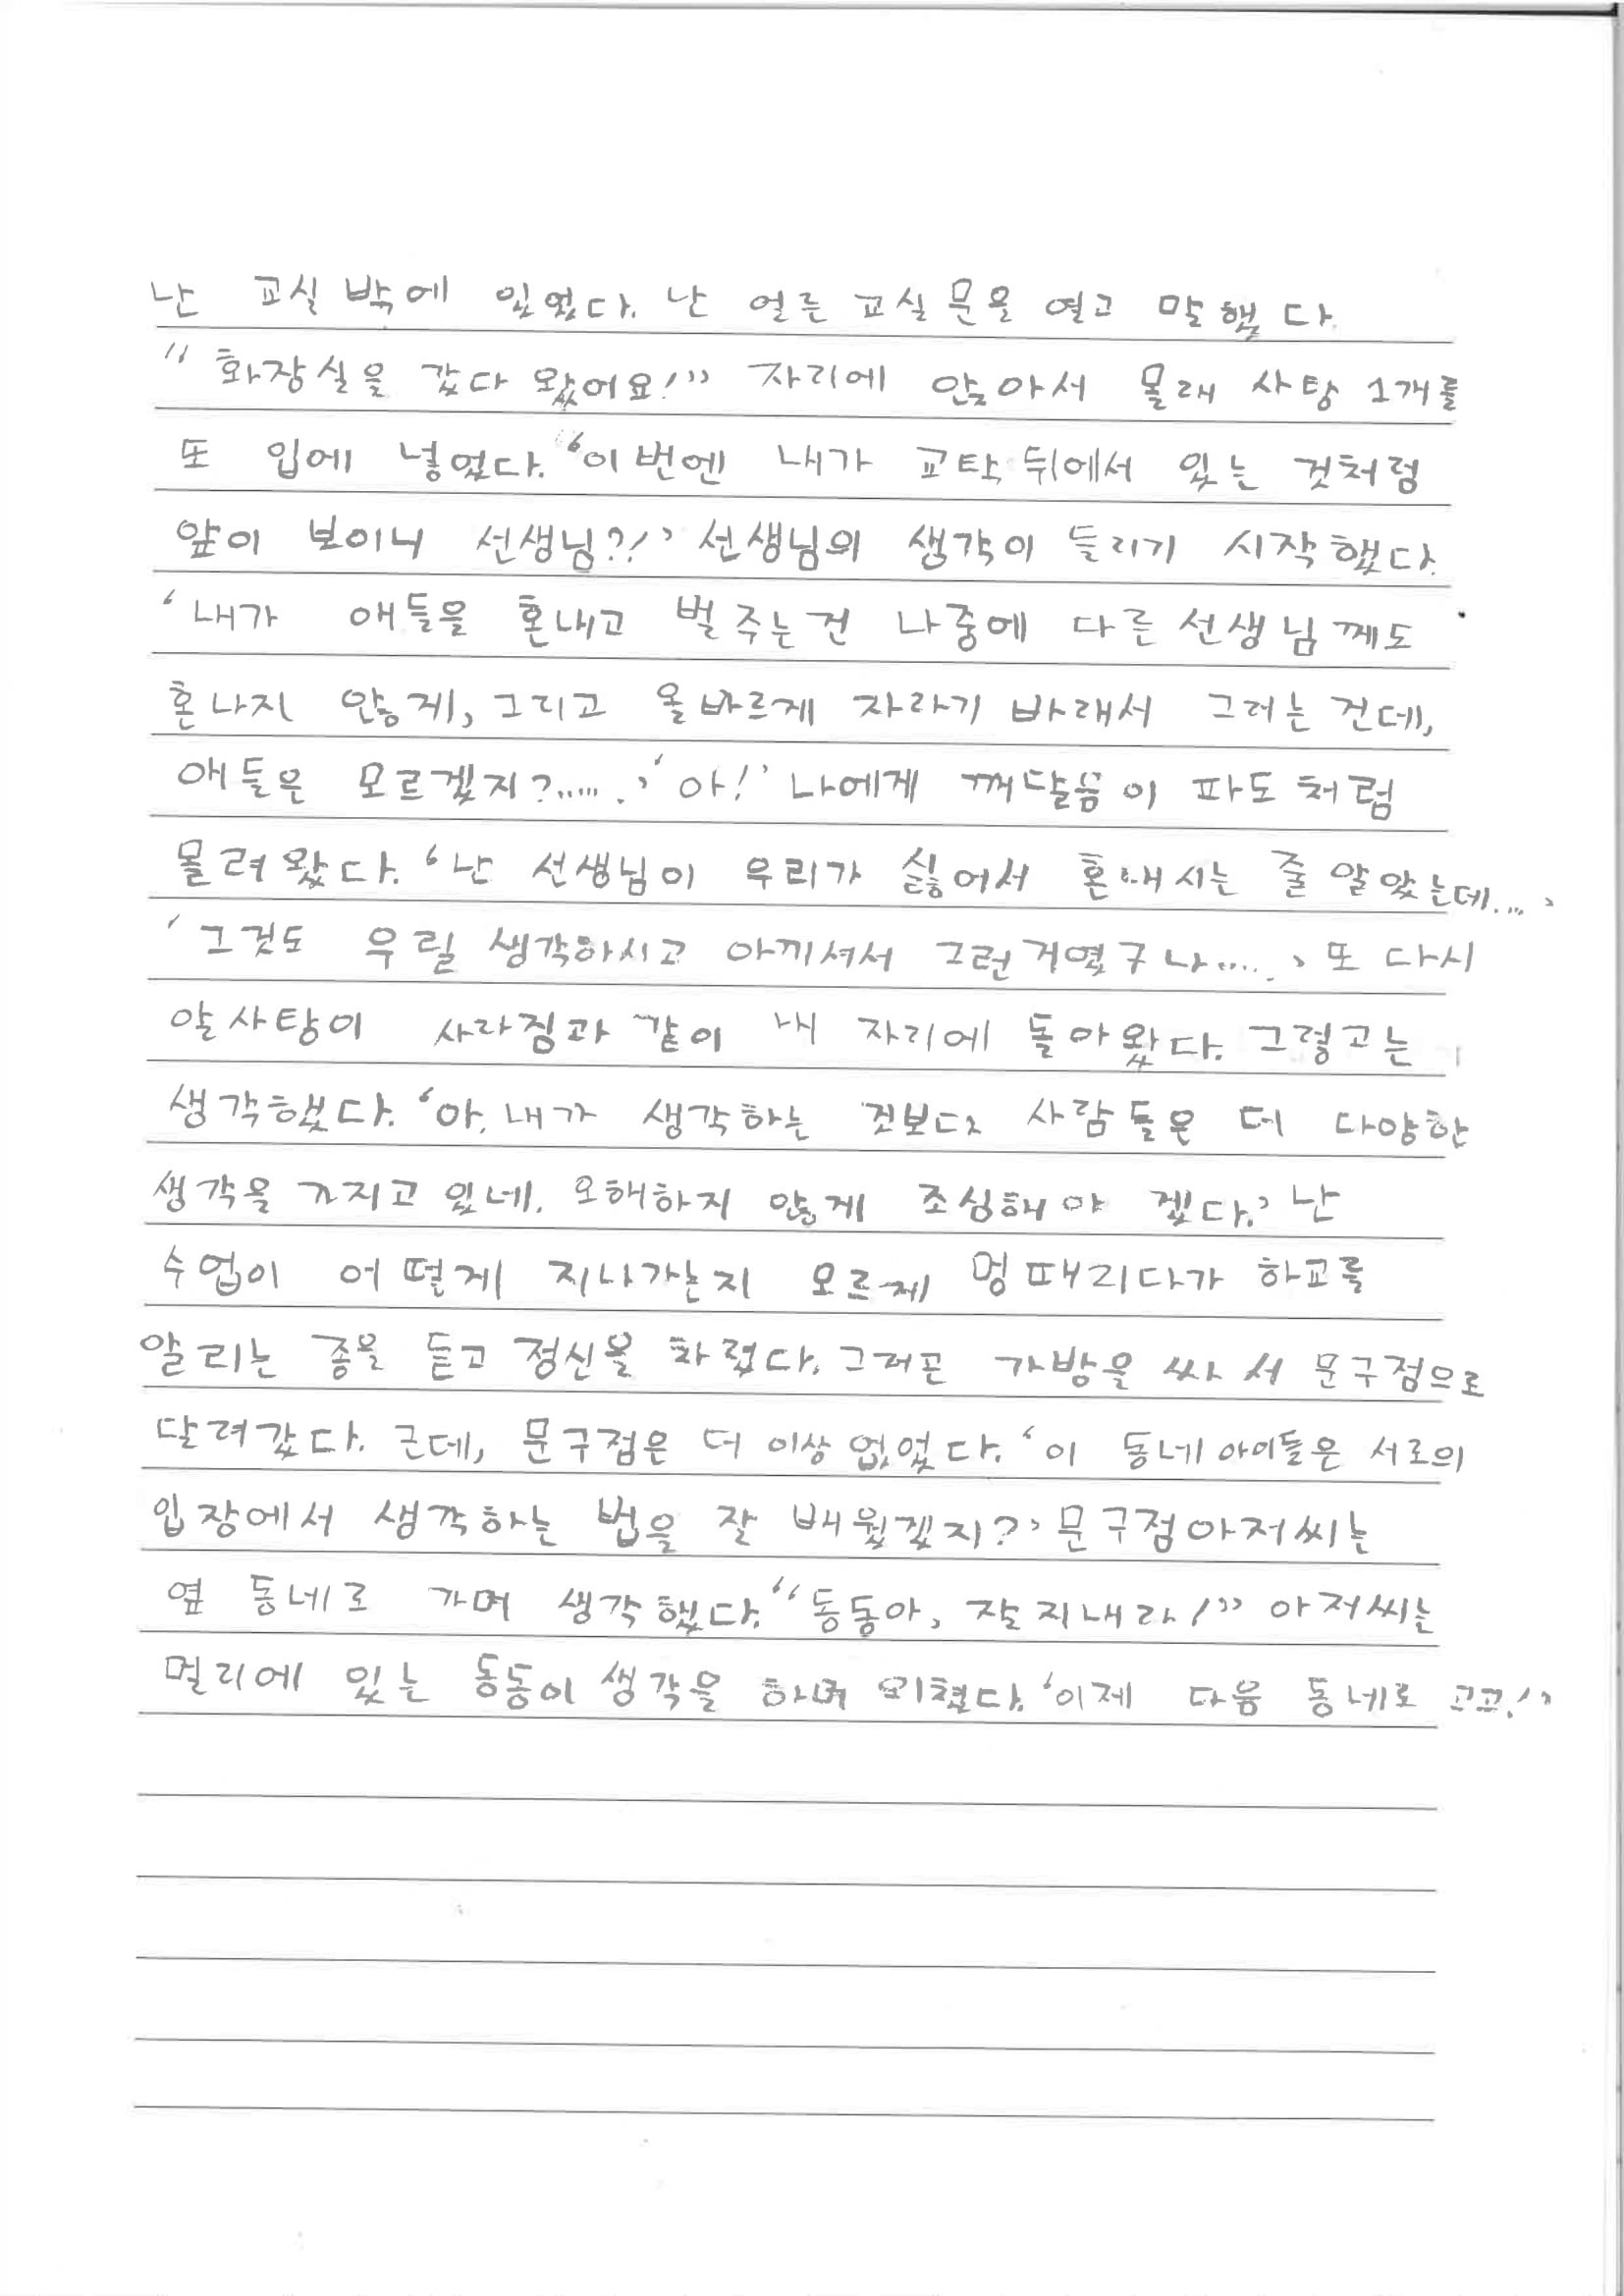 난 교실 밖에 있었다. 난 얼른 교실 문을 열고 말했다.
"화장실을 갔다 왔어요!" 자리에 앉아서 몰래 사탕 1개를
또 입에 넣었다. '이번엔 내가 교탁 뒤에서 있는 것처럼
앞이 보이니 선생님?!' 선생님의 생각이 들리기 시작했다.
'내가 애들을 혼내고 벌주는건 나중에 다른 선생님께도
혼나지 않게, 그리고 올바르게 자라기 바래서 그러는 건데,
애들은 모르겠지?......' '아!' 나에게 깨달음이 파도처럼
몰려왔다. '난 선생님이 우리가 싫어서 혼내시는 줄 알았는데....'
'그것도 우릴 생각하시고 아끼셔서 그런거였구나.....' 또 다시
알사탕이 사라짐과 같이 내 자리에 돌아왔다. 그렇고는
생각했다. '아, 내가 생각하는 것보다 사람들은 더 다양한
생각을 가지고 있네. 오해하지 않게 조심해야 겠다.' 난
수업이 어떻게 지나가는지 모르게 멍때리다가 하교를
알리는 종을 듣고 정신을 차렸다. 그러곤 가방을 싸서 문구점으로
달려갔다. 근데, 문구점은 더 이상 없었다. '이 동네 아이들은 서로의
입장에서 생각하는 법을 잘 배웠겠지?' 문구점아저씨는
옆 동네로 가며 생각했다. "동동아, 잘 지내라!" 아저씨는
멀리에 있는 동동이 생각을 하며 외쳤다. '이제 다음 동네로 고고!'